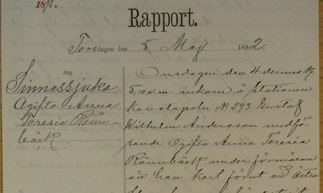 187
Rapport.
Torsdagen den 5 Maj 1882.
Sinnessjuka
Ogifta Anna
Teresia Rönn-
bäck
Onsdagen den 4 dennes kl
5. inkom å Stationen
konstapeln N 293 Gustaf
Wilhelm Andersson medför-
ande Ogifta Anna Teresia
Rönnbäck under förmälan
att han kort förut vid